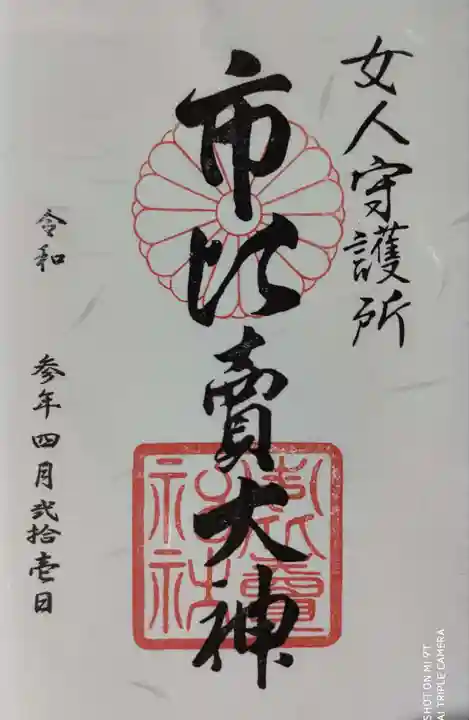 女人守護所
市比賣大神
令和 参年四月弐拾壱日
SHOT ON MI 9T
AI TRIPLE CAMERA